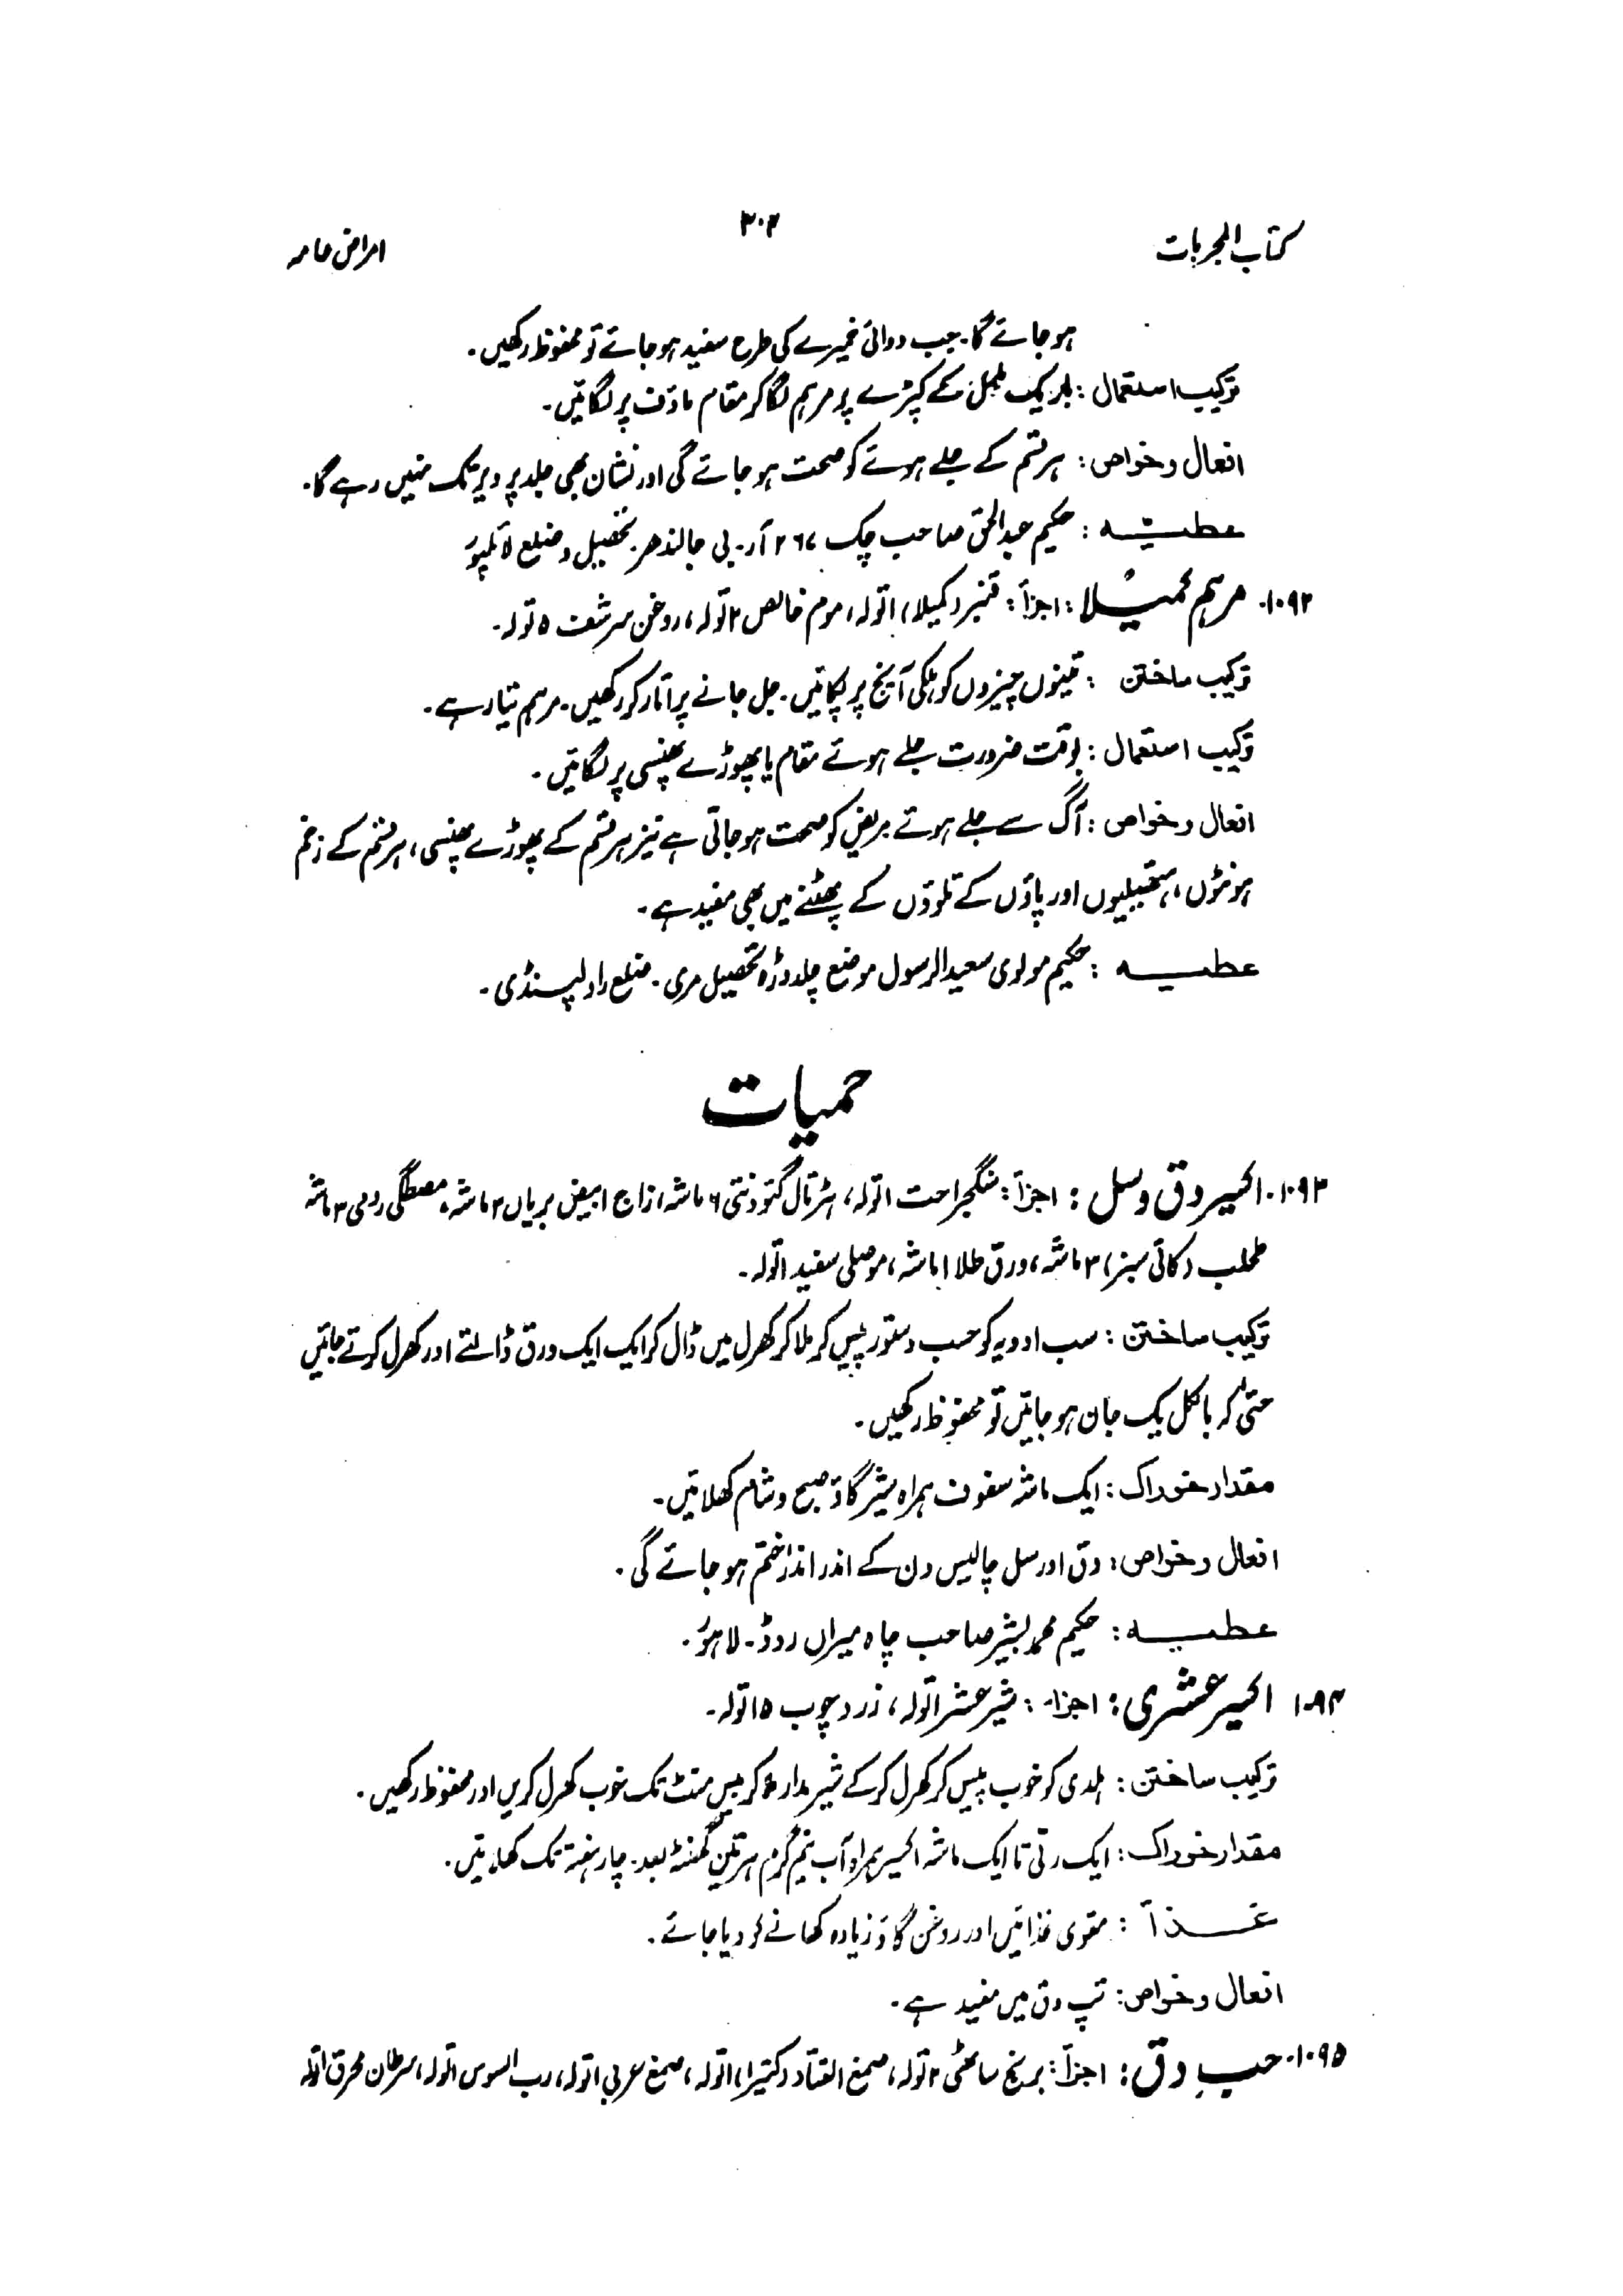 کتاب المجربات
۳۰۲
امراض عامہ
ہو جائے گا۔ جب دوائی خمیرے کی طرح سفید ہو جائے تو محفوظ رکھیں۔
ترکیب استعمال : باریک ململ کے کپڑے پر مرہم لگا کر مقام ماؤف پر لگائیں۔
افعال و خواص : ہر قسم کے جلے ہوئے کو صحت ہو جائے گی اور نشان بھی جلد پر دیر تک نہیں رہے گا۔
عطیہ : حکیم عبدالحق صاحب چک ۲۶۷ آر۔ بی جالندھر۔ تحصیل و ضلع لائلپور
۱۰۹۲۔ مرہم کمیلا : اجزأ : قنبیر (کمیلا) ۱تولہ، موم خالص ۲تولہ، روغن سرشف ۵ تولہ۔
ترکیب ساختن : تینوں چیزوں کو ہلکی آنچ پر پکائیں۔ جل جانے پر اتار کر رکھیں۔ مرہم تیار ہے۔
ترکیب استعمال : بوقت ضرورت جلے ہوئے مقام یا پھوڑے پھنسی پر لگائیں۔
افعال و خواص : آگ سے جلے ہوئے مریض کو صحت ہو جاتی ہے نیز ہر قسم کے پھوڑے پھنسی، ہر قسم کے زخم
ہونٹوں، ہتھیلیوں اور پاؤں کے تلوؤں کے پھٹنے میں بھی مفید ہے۔
عطیہ : حکیم مولوی سعید الرسول موضع تحصیل مری۔ ضلع راولپنڈی۔
حمیات
۱۰۹۳۔ اکسیر دق و سل : اجزأ : سنگجراحت ۱تولہ، ہڑتال گئودنتی ۶ ماشہ، زاج ابیض بریاں ۳ ماشہ، مصطگی رومی ۳ ماشہ
طحلب (کائی سبز) ۳ ماشہ، ورق طلا ۱ ماشہ، موصلی سفید ۱تولہ۔
ترکیب ساختن : سب ادویہ کو حسب دستور پیس کر ملا کر کھرل میں ڈال کر ایک ایک ورق ڈالتے اور کھرل کرتے جائیں
حتیٰ کہ بالکل یک جان ہو جائیں تو محفوظ رکھیں۔
مقدار خوراک : ایک ماشہ سفوف ہمراہ شیر گاؤ صبح و شام کھلائیں۔
افعال و خواص : دق اور سل چالیس دن کے اندر اندر ختم ہو جائے گی۔
عطیہ : حکیم محمد بشیر صاحب چاہ میراں روڈ۔ لاہور۔
۱۰۹۴ اکسیر عشری : اجزا۔ : شیر عشر ۱تولہ، زرد چوب ۱۵تولہ۔
ترکیب ساختن : ہلدی کو خوب پیس کر کھرل کر کے شیر مدار کر بیس منٹ تک خوب کھرل کریں اور محفوظ رکھیں۔
مقدار خوراک : ایک رتی تا ایک ماشہ اکسیر ہمراہ آب نیم گرم ہر تین گھنٹہ بعد۔ چار ہفتہ تک کھلائیں۔
غذا : مقوی غذائیں اور روغن گاؤ زیادہ کھانے کو دیا جائے۔
افعال و خواص : تپ دق میں مفید ہے۔
۱۰۹۵۔ حب دق : اجزأ : برنج ساٹھی ۲ تولہ، صمغ القتاد (کتیرا) ۱تولہ، صمغ عربی ۱تولہ، رب السوس ۱تولہ، سرطان محرق ۱تولہ